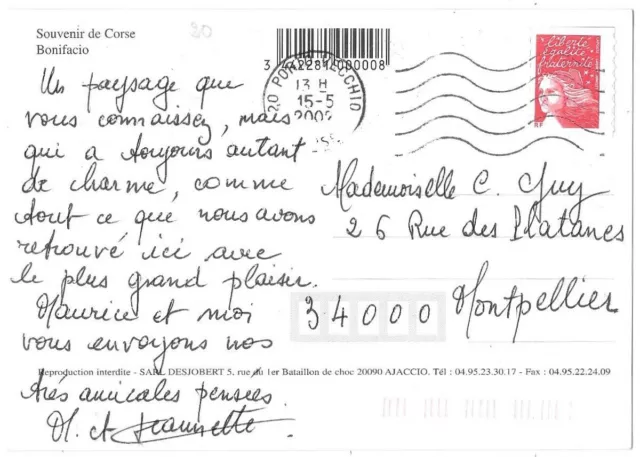 Souvenir de Corse
Bonifacio
20
Un paysage que
vous connaissez, mais
qui a toujours autant
de charme, comme
tout ce que nous avons
retrouvé ici avec
le plus grand plaisir.
Maurice et moi
vous envoyons nos
très amicales pensées.
M. et Jeannette
13 H
15-5
liberté
égalité
fraternité
RF
Mademoiselle C. Guy
26 Rue des Platanes
34000 Montpellier
Reproduction interdite - SARL DESJOBERT 5, rue du 1er Bataillon de choc 20090 AJACCIO. Tél : 04.95.23.30.17 - Fax : 04.95.22.24.09